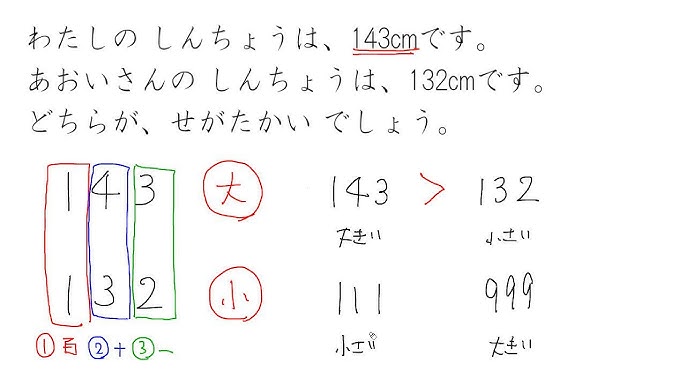 わたしの しんちょうは、143cmです。
あおいさんの しんちょうは、132cmです。
どちらが、せがたかい でしょう。
1 4 3 大
1 3 2 小
① 百 ② 十 ③ 一
143 > 132
大きい 小さい
111 999
小さい 大きい